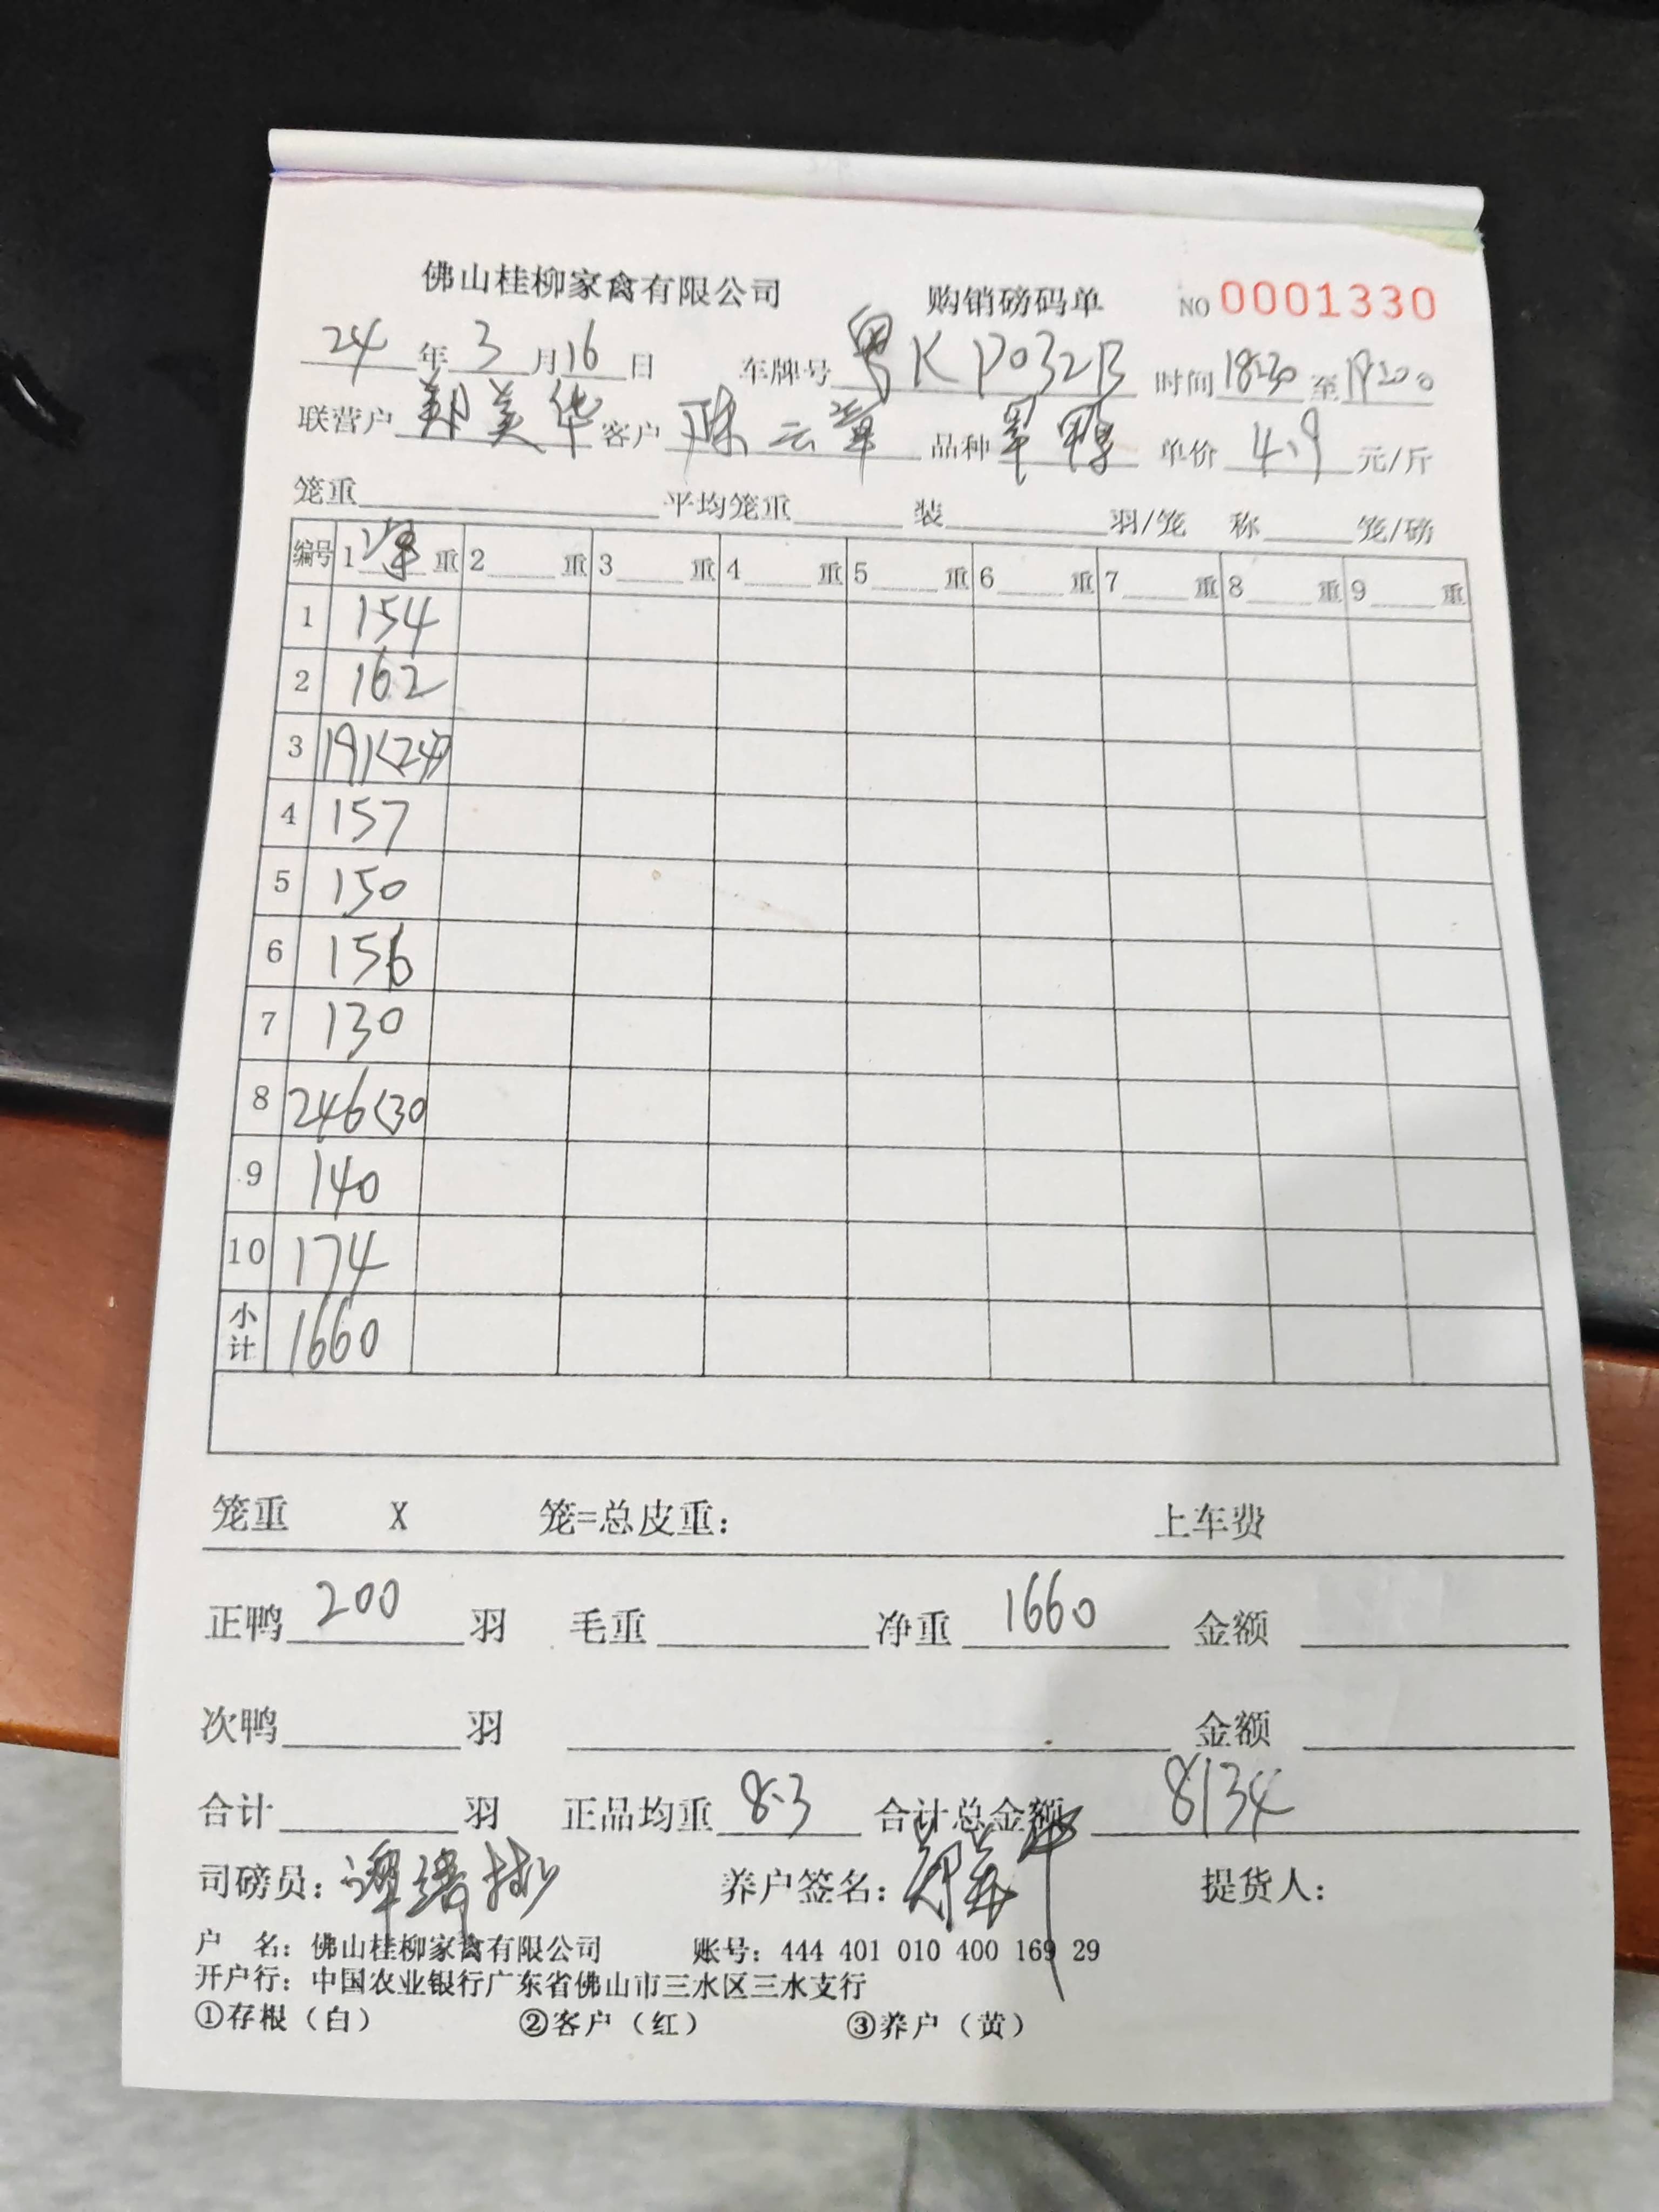 佛山桂柳家禽有限公司 购销磅码单 NO 0001330
24年3月16日 车牌号 粤KP032B 时间 18:30 至 19:20
联营户 郑美华 客户 陈云章 品种 单价 4.9 元/斤
笼重 平均笼重 装 羽/笼 称 笼/磅
编号 1 净重 2 重 3 重 4 重 5 重 6 重 7 重 8 重 9 重
1 154
2 162
3 191<24>
4 157
5 150
6 156
7 130
8 246<30
9 140
10 174
小计 1660
笼重 X 笼=总皮重: 上车费
正鸭 200 羽 毛重 净重 1660 金额
次鸭 羽 金额
合计 羽 正品均重 8.3 合计总金额 8134
司磅员: 养户签名: 提货人:
户 名: 佛山桂柳家禽有限公司 账号: 444 401 010 400 169 29
开户行: 中国农业银行广东省佛山市三水区三水支行
①存根（白） ②客户（红） ③养户（黄）